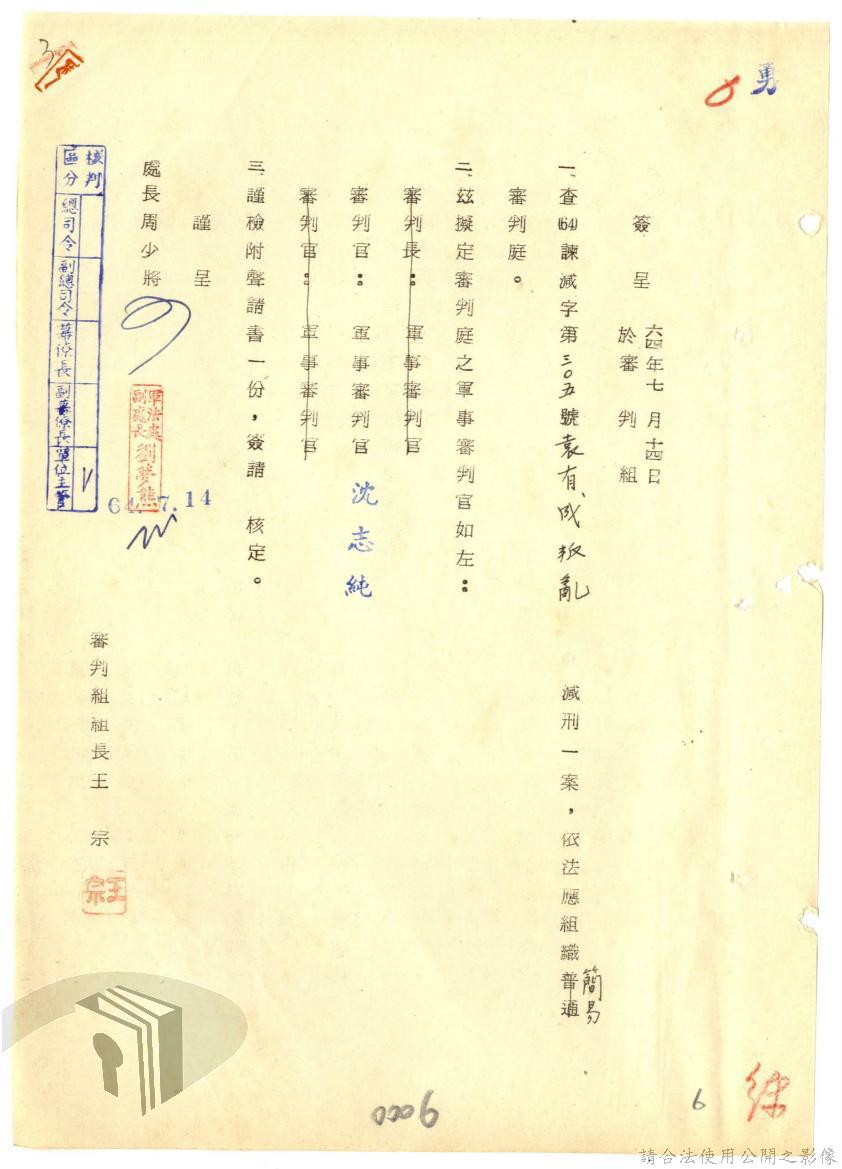 勇
簽呈 六四年七月十四日
於審判組
一、查(64)諫減字第三〇五號袁有成叛亂 減刑一案，依法應組織普通
簡易
審判庭。
二、茲擬定審判庭之軍事審判官如左：
審判長：軍事審判官
審判官：軍事審判官 沈志純
審判官：軍事審判官
三、謹檢附聲請書一份，簽請 核定。
謹呈
處長周少將
軍法處
副處長 劉夢熊
64.7.14
審判組組長王 宗
王宗
核判
區分
總司令
副總司令
幕僚長
副幕僚長
單位主管
3
0006
6
請合法使用公開之影像